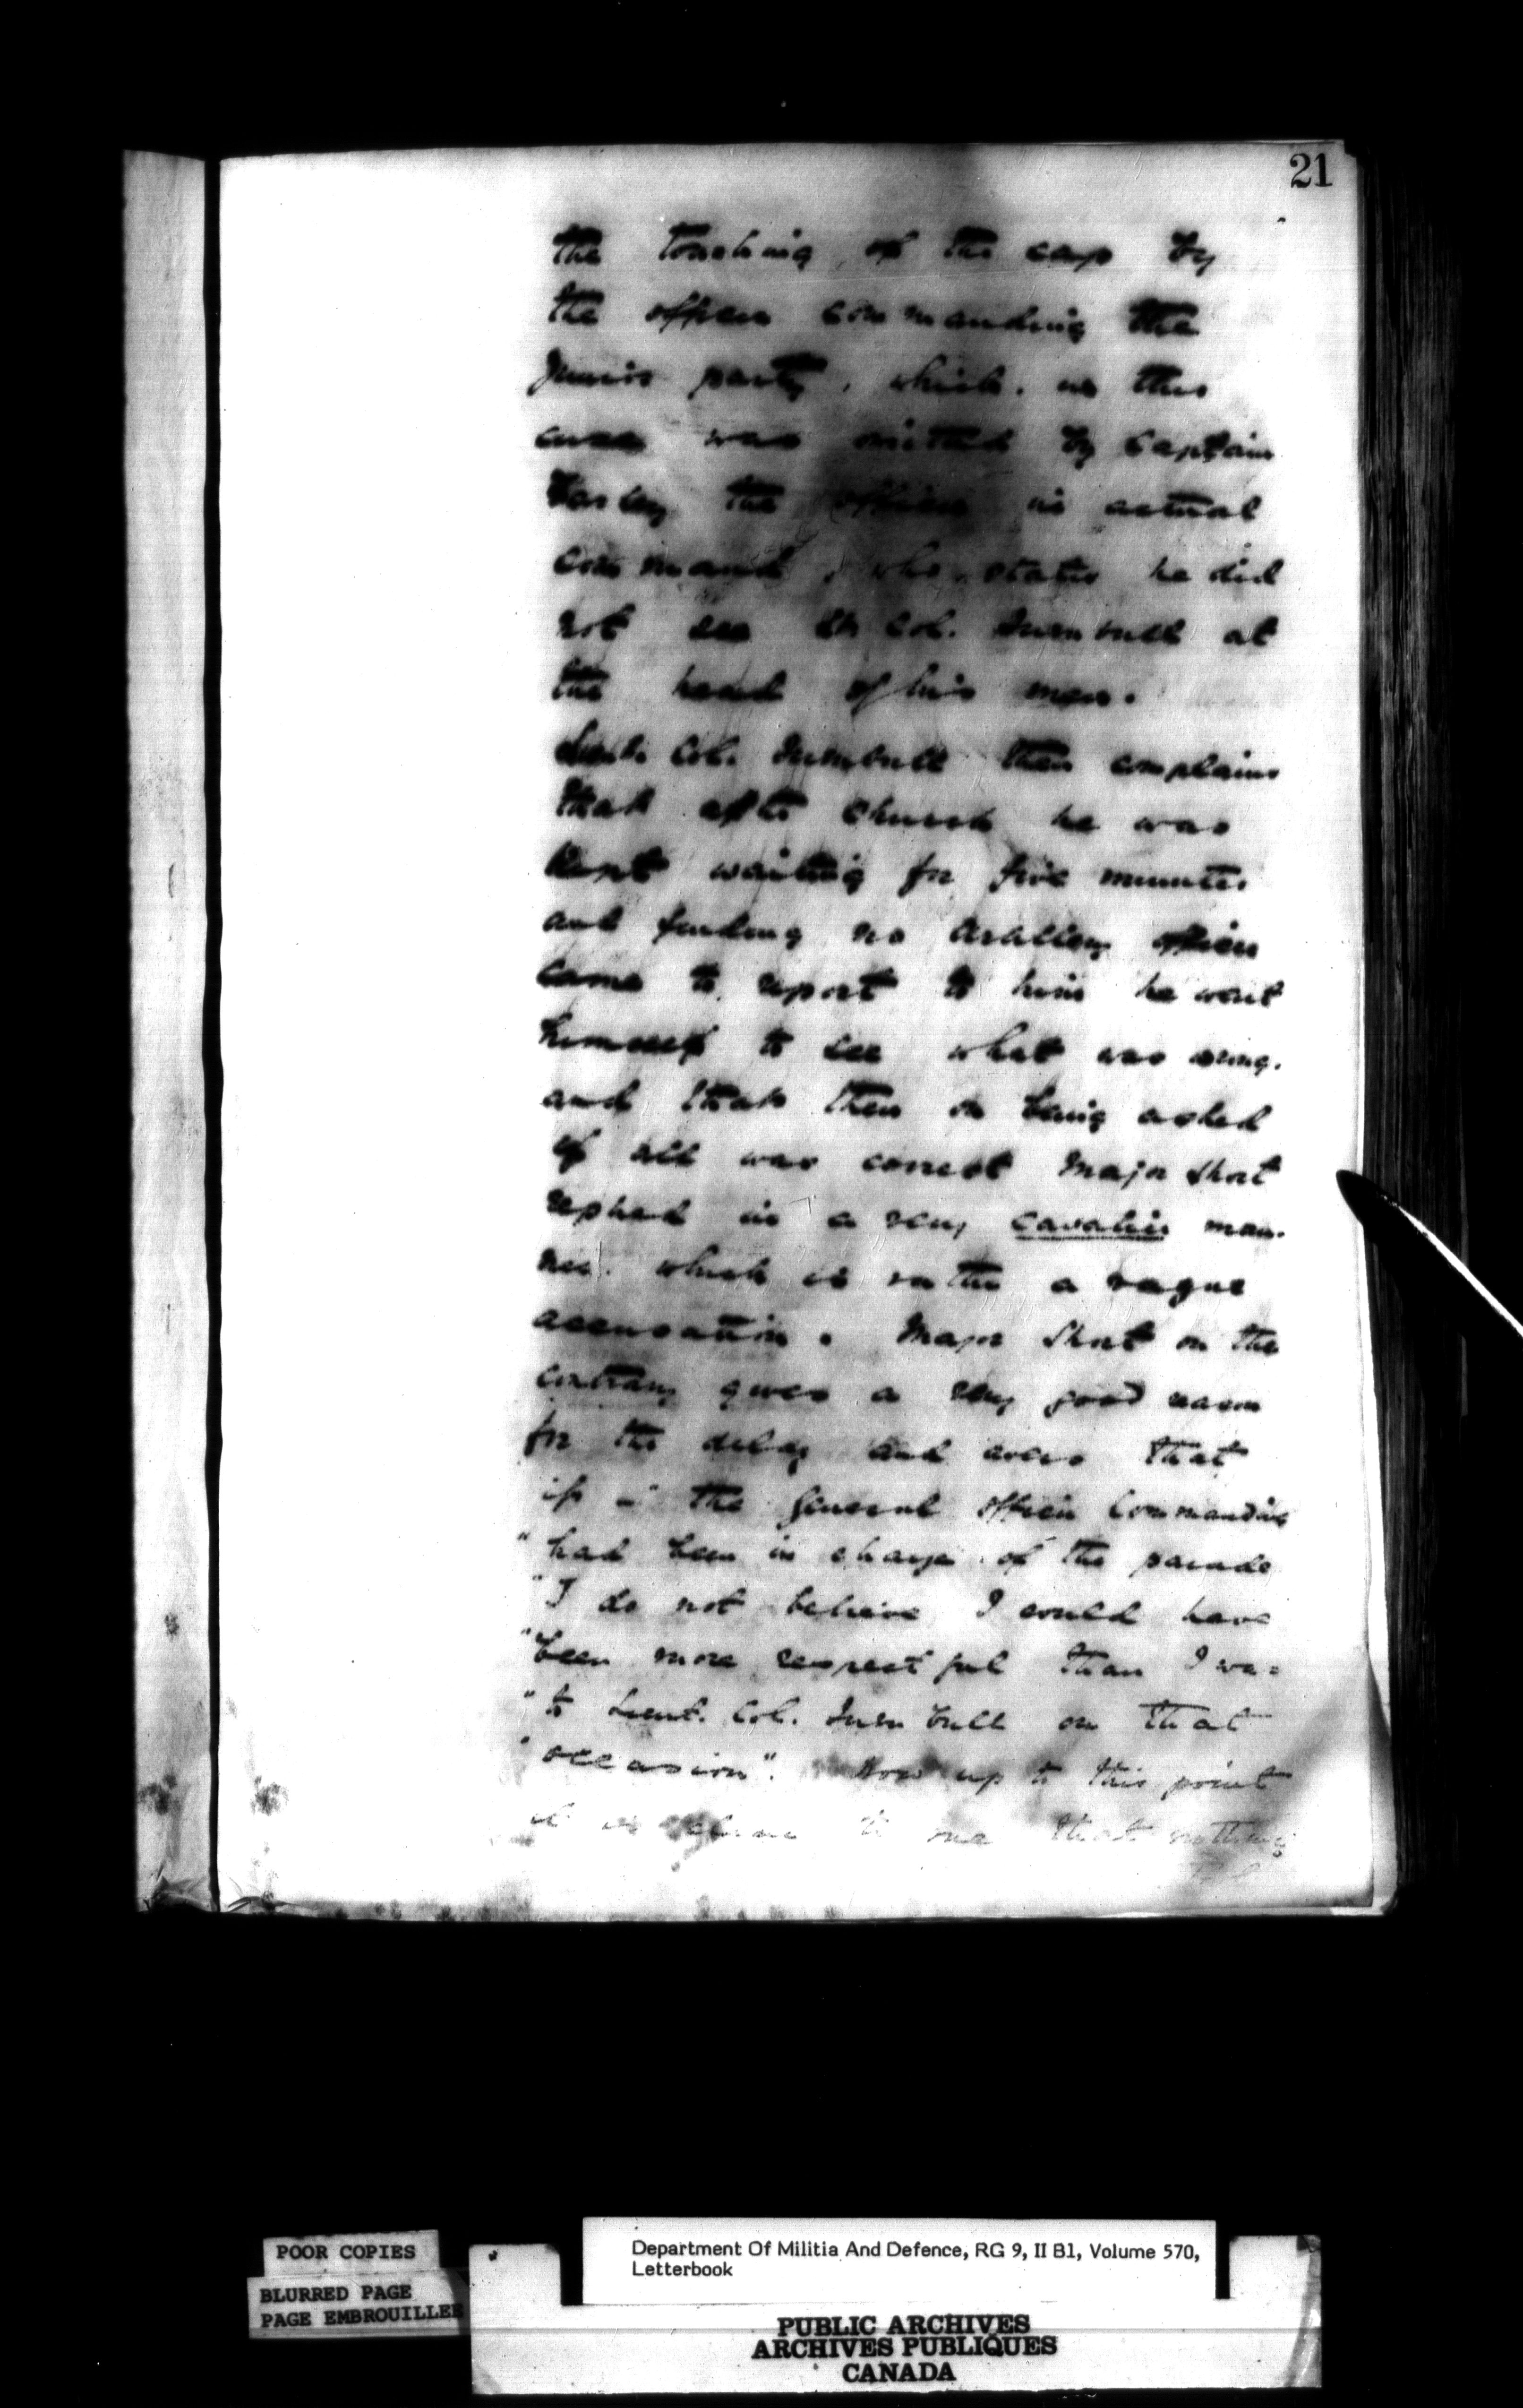 21
the touching of the cap by
the officer commanding the
Junior party, which in this
case was omitted by Captain
the officer in actual
command, who states he did
not see Lt Col. Turnbull at
the head of his men.
Lieut. Col. Turnbull then complains
that after Church he was
kept waiting for five minutes
and finding no Artillery officer
came to report to him he went
himself to see what was wrong.
and that then on being asked
if all was correct Major Short
replied in a very cavalier man-
ner. which is rather a vague
accusation. Major Short on the
contrary gives a very good reason
for the delay and avers that
if the General Officer Commanding
"had been in charge of the parade
"I do not believe I could have
"been more respectful than I was
"to Lieut. Col. Turnbull on that
"occasion". Now up to this point
it is clear to me that nothing
POOR COPIES
BLURRED PAGE
PAGE EMBROUILLEE
Department Of Militia And Defence, RG 9, II B1, Volume 570,
Letterbook
PUBLIC ARCHIVES
ARCHIVES PUBLIQUES
CANADA